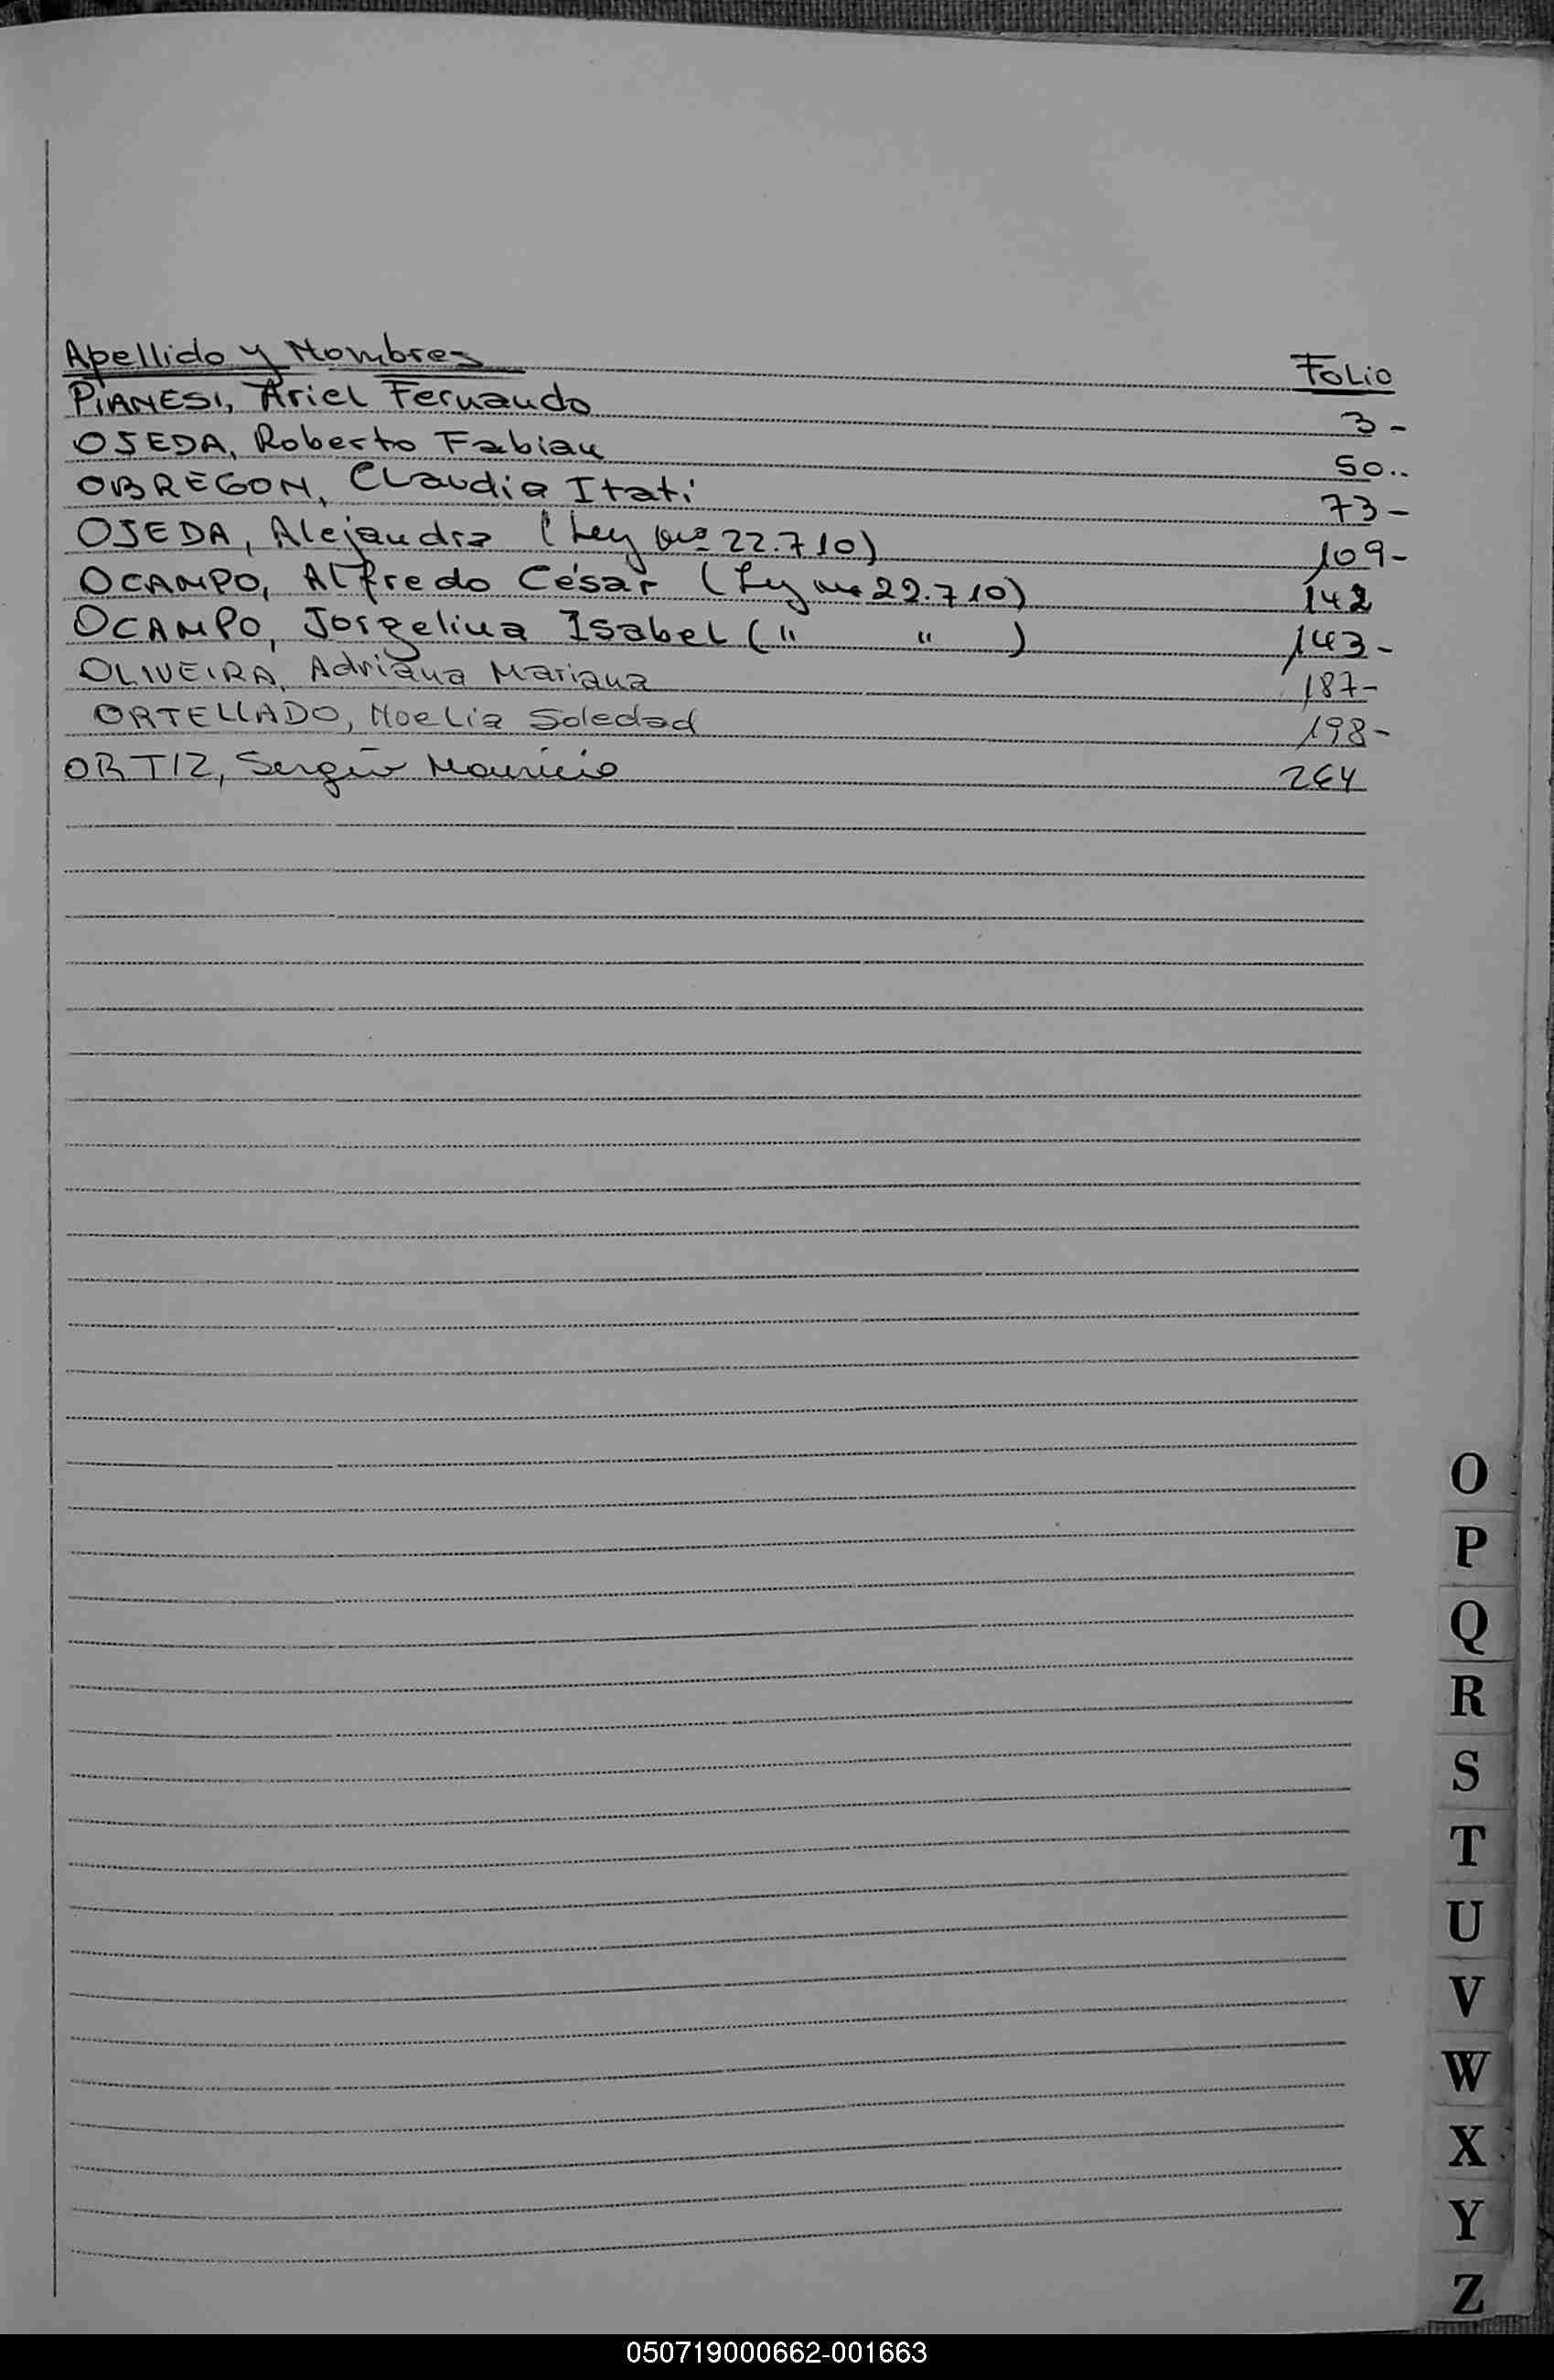 Apellido y Nombres Folio
PIANESI, Ariel Fernando 3-
OJEDA, Roberto Fabian 50..
OBREGON, Claudia Itatí 73-
OJEDA, Alejandra (Ley nro 22.710) 109-
OCAMPO, Alfredo César (Ley nro 22.710) 142
OCAMPO, Jorgelina Isabel (" ") 143-
OLIVEIRA, Adriana Mariana 187-
ORTELLADO, Noelia Soledad 198-
ORTIZ, Sergio Mauricio 264
O
P
Q
R
S
T
U
V
W
X
Y
Z
050719000662-001663